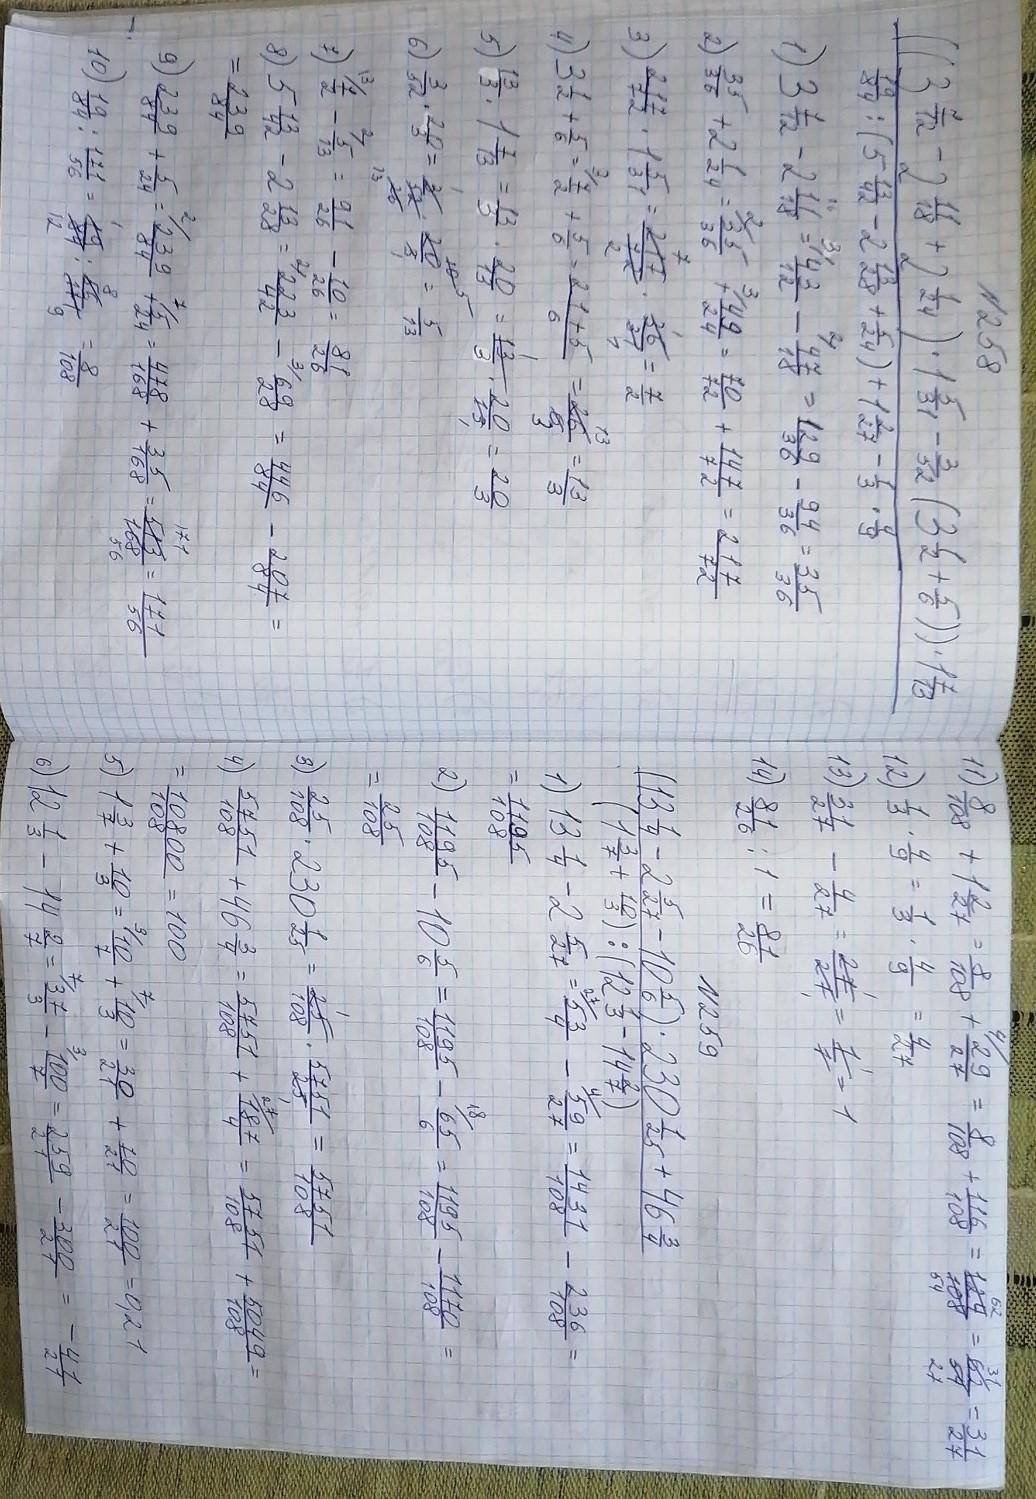 N258
((3 7/12 - 2 11/18 + 2 1/24) · 1 5/31 - 3/52 (3 1/2 + 5/6)) · 1 7/13
19/84 : (5 13/42 - 2 13/28 + 5/24) + 1 2/27 - 1/3 · 4/9
1) 3 7/12 - 2 11/18 = 43/12 - 47/18 = 129/36 - 94/36 = 35/36
2) 35/36 + 2 1/24 = 35/36 + 49/24 = 70/72 + 147/72 = 217/72
3) 217/72 · 1 5/31 = 217/72 · 36/31 = 7/2
4) 3 1/2 + 5/6 = 7/2 + 5/6 = 21+5/6 = 26/6 = 13/3
5) 13/3 · 1 7/13 = 13/3 · 20/13 = 13/3 · 20/13 = 20/3
6) 3/52 · 20/3 = 3/52 · 20/3 = 5/13
7) 7/2 - 5/13 = 91/26 - 10/26 = 81/26
8) 5 13/42 - 2 13/28 = 223/42 - 69/28 = 446/84 - 207/84 =
= 239/84
9) 239/84 + 5/24 = 239/84 + 5/24 = 478/168 + 35/168 = 513/168 = 171/56
10) 19/84 : 171/56 = 19/84 : 56/171 = 8/108
11) 8/108 + 1 2/27 = 8/108 + 29/27 = 8/108 + 116/108 = 124/108 = 62/54 = 31/27
12) 1/3 · 4/9 = 1/3 · 4/9 = 4/27
13) 31/27 - 4/27 = 27/27 = 1/1 = 1
14) 81/26 : 1 = 81/26
N259
(13 1/4 - 2 5/27 - 10 5/6) · 230 1/25 + 46 3/4
(1 3/7 + 10/3) : (12 1/3 - 14 2/7)
1) 13 1/4 - 2 5/27 = 53/4 - 59/27 = 1431/108 - 236/108 =
= 1195/108
2) 1195/108 - 10 5/6 = 1195/108 - 65/6 = 1195/108 - 1170/108 =
= 25/108
3) 25/108 · 230 1/25 = 25/108 · 5751/25 = 5751/108
4) 5751/108 + 46 3/4 = 5751/108 + 187/4 = 5751/108 + 5049/108 =
= 10800/108 = 100
5) 1 3/7 + 10/3 = 10/7 + 10/3 = 30/21 + 70/21 = 100/21 = 0,21
6) 12 1/3 - 14 2/7 = 37/3 - 100/7 = 259/21 - 300/21 = - 41/21